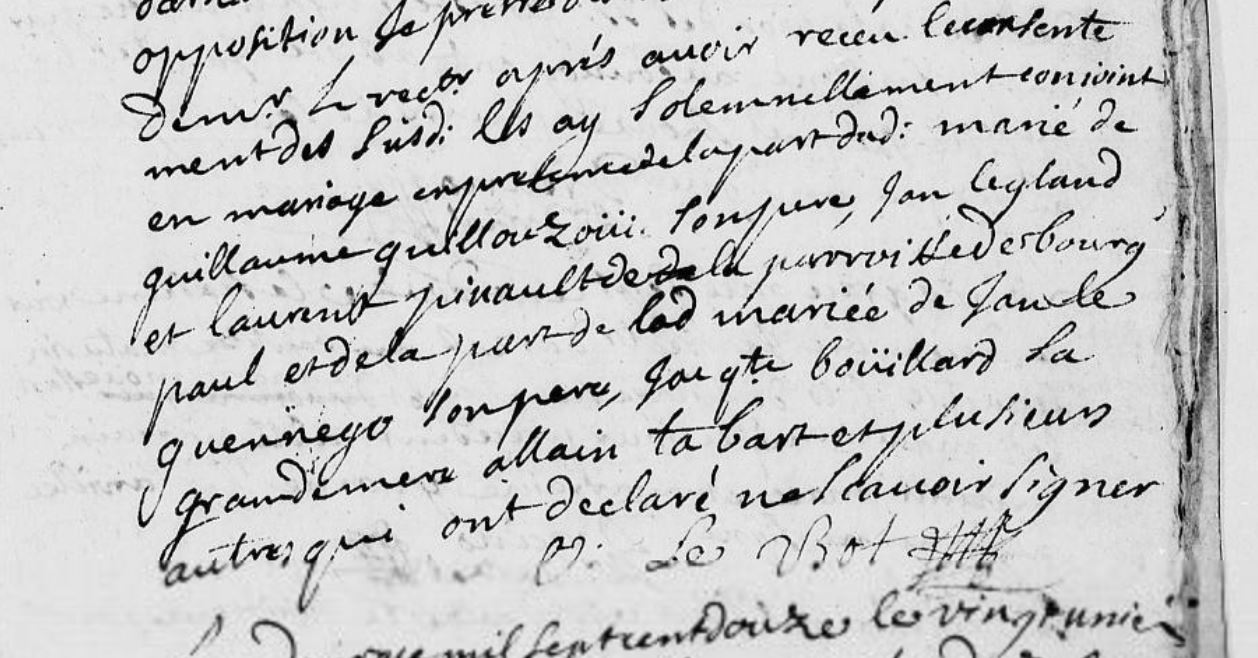 opposition je
de mr Le rectr aprés auoir receu le consente
ment des susd: les ay solemnellement conioint
en mariage en presence de la part dud: marié de
guillaume guillouzoüi. son pere, Jan legland
et laurent pinault de de la parroisse des bourg
paul et de la part de lad mariée de Jan le
quennego son pere, Jacqte boüillard sa
grandemere allain tabart et plusieurs
autres qui ont declaré ne scauoir signer
Le Bot
mil sept cent douze le vingt unié